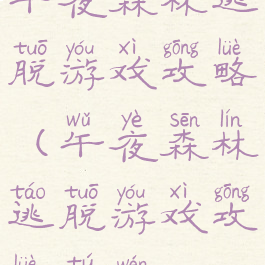 午夜森林逃
tuō yóu xì gōng lüè
脱游戏攻略
wǔ yè sēn lín
（午夜森林
táo tuō yóu xì gōng
逃脱游戏攻
lüè tú wén